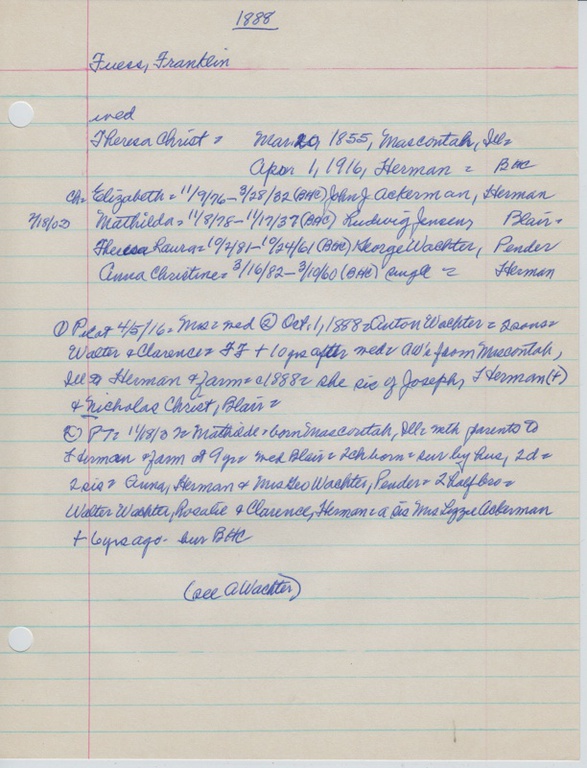 1888
Fuess, Franklin
wed
Theresa Christ = Mar 20, 1855, Mascoutah, Ill=
Apr 1, 1916, Herman = BHC
Ch= Elizabeth = 11/9/76 - 3/28/32 (BHC) John J Ackerman, Herman
Mathilda = 11/8/78 - 11/17/37 (BHC) Ludwig Jensen, Blair=
Theresa Laura = 10/2/81 - 10/24/61 (BHC) George Wachter, Pender
Anna Christine = 3/16/82 - 3/19/60 (BHC) single = Herman
① Pilot 4/5/16 = Mrs = wed ② Oct. 1, 1888 = Anton Wachter = 2 sons =
Walter & Clarence = FF + 10 yrs after wed = AW's from Mascoutah,
Ill = Herman & farm = c1888 = she sis of Joseph, Herman (+)
& Nicholas Christ, Blair =
② PT = Mathilde = born Mascoutah, Ill = wth parents to
Herman & farm at 9 yrs = wed Blair = 2ch born = sur by hus, 2d =
2 sis = Anna, Herman & Mrs Geo Wachter, Pender = 2 half bro =
Walter Wachter, Rosalie & Clarence, Herman = a sis Mrs Lizzie Ackerman
+ 6 yrs ago - bur BHC
(see A Wachter)